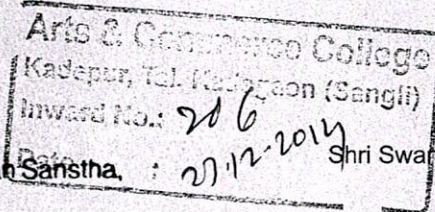 Arts & Commerce College
Kadepur, Tal. Kadegaon (Sangli)
Inward No.: 206
Date : 27-12-2014
n Sanstha,
Shri Swa